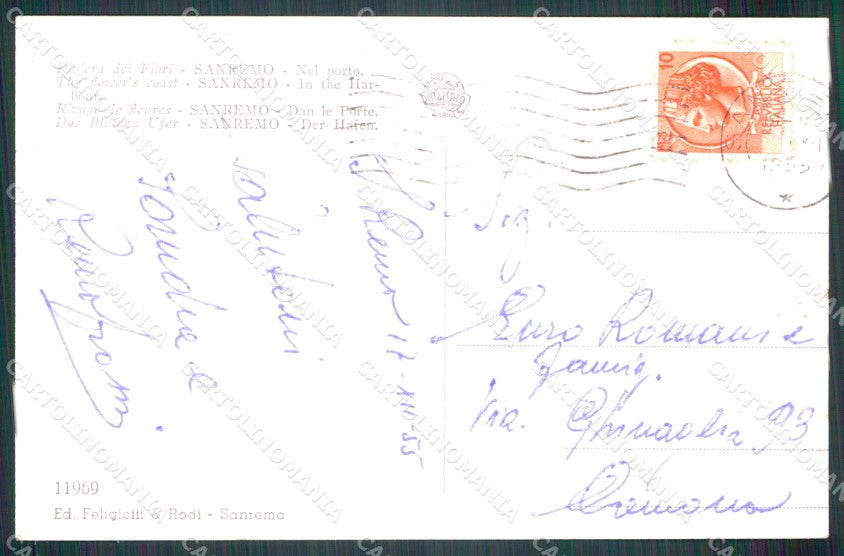 Riviera dei Fiori - SANREMO - Nel porto.
The flower's coast - SANREMO - In the Harbour.
Rivage de fleures - SANREMO - Dan le Porte.
Das Blumen Ufer - SANREMO - Der Hafen.
S. Remo 17-XII-55
salutoni
Sig.
Enzo Romani e
famig.
Via. Ghinaglia 93
Cremona
10
REPUBBLICA
ITALIANA
11969
Ed. Feligiotti & Rodi - Sanremo
CARTOLINOMANIA